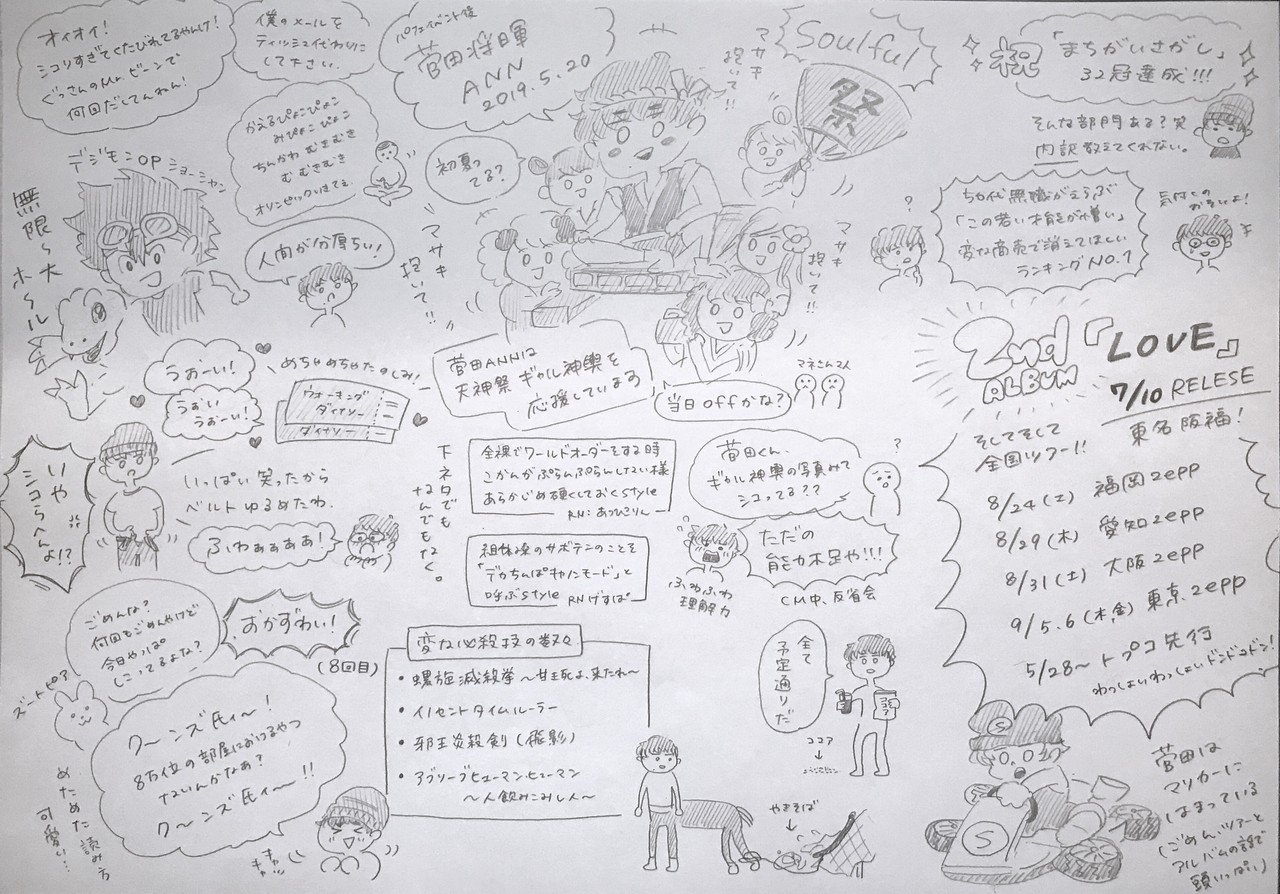 オイオイ!
シコりすぎてくたびれてるやんけ!
ぐっさんのMr.ビーンで
何回だしてんねん!
僕のメールを
ティッシュ代わりに
して下さい.
パフェイベント後
菅田将暉
ANN
2019.5.20
マサキ
抱いて!!
Soulful
祭
祝
「まちがいさがし」
32冠達成!!!
そんな部門ある?笑
内訳教えてくれない。
かえるぴょこぴょこ
みぴょこぴょこ
ちんかわむきむき
むむきむき
初夏っ
てる?
デジモンOP ショーシャン
無限〜大
ホ〜ル
人肉が分厚ちぃ!
マサキ
抱いて!!
マサキ
抱いて!!
ちか代無職がえらぶ
「この若い才能が憎い」
変な商売で消えてほしい
ランキングNO.1
気付くの
おそいよ!
2nd
ALBUM
『LOVE』
7/10 RELESE
東名阪福!
そしてそして
全国ツアー!!
8/24(土) 福岡zepp
8/29(木) 愛知zepp
8/31(土) 大阪zepp
9/5.6(木,金) 東京zepp
5/28〜トプコ先行
わっしょいわっしょいドンドコドン!
うぉーい!
うぉい
うぉーい!
めちゃめちゃたのしみ!
ウォーキング
ダイナソー
ダイナソー
菅田ANNは
天神祭 ギャル神輿を
応援しています
当日offかな?
マネさん2人
いや
シコらへんよ!?
いっぱい笑ったから
ベルトゆるめたわ.
ふわぁぁぁぁ!
下ネタでも
なんでもなく。
全裸でワールドオーダーをする時
こかんがぷらんぷらんしない様
あらかじめ硬くしておくstyle
RN:あつひこりん
組体操のサボテンのことを
「デカちんぽキャノンモード」と
呼ぶstyle RNげすぱ
菅田くん、
ギャル神輿の写真みて
シコってる??
ただの
能力不足や!!!
ふわふわ
理解力
CM中、反省会
ごめんな?
何回もごめんやけど
今日やっぱ
しこってるよな?
おかずわい!
(8回目)
ズートピア
ク〜ンズ氏ィ〜!
8万位の部屋におけるやつ
ないんかなぁ?
ク〜ンズ氏ィ〜!!
めためた読み方
可愛い…
キャッ
キャッ
変な必殺技の数々
・螺旋滅殺拳 〜甘き死よ、来たれ〜
・イノセントタイムルーラー
・邪王炎殺剣(飛影)
・アブソーブヒューマンヒューマン
〜人飲みこみし人〜
全て
予定通りだ
ココア
やきそば
菅田は
マリカーに
はまっている
(ごめん、ツアーと
アルバムの話で
頭いっぱい)